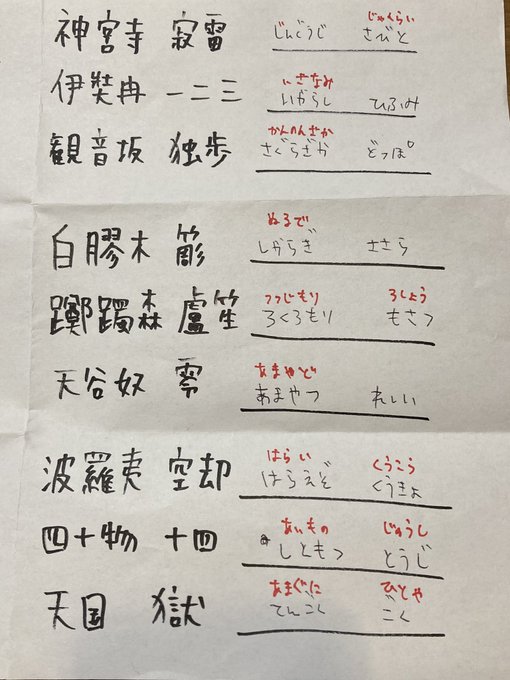 じゃくらい
神宮寺 寂雷 じんぐうじ さびと
いざなみ
伊弉冉 一二三 いがらし ひふみ
かんのんざか
観音坂 独歩 さくらざか どっぽ
ぬるで
白膠木 簓 しからぎ ささら
つつじもり ろしょう
躑躅森 盧笙 ろくろもり もさつ
あまやど
天谷奴 零 あまやつ れいい
はらい くうこう
波羅夷 空却 はらえぞ くうきょ
あいもの じゅうし
四十物 十四 しともつ とうじ
あまぐに ひとや
天国 獄 てんごく ごく